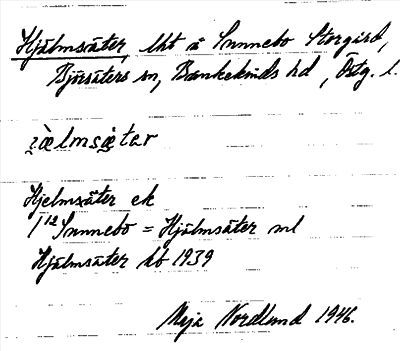 Hjälmsäter, lht å Sunnebo Storgård,
Björsäters sn, Bankekinds hd, Östg. l.
jælmsætar
Hjelmsäter ek
1/12 Sunnebo = Hjälmsäter ml
Hjälmsäter hb 1939
Maja Nordlund 1946.